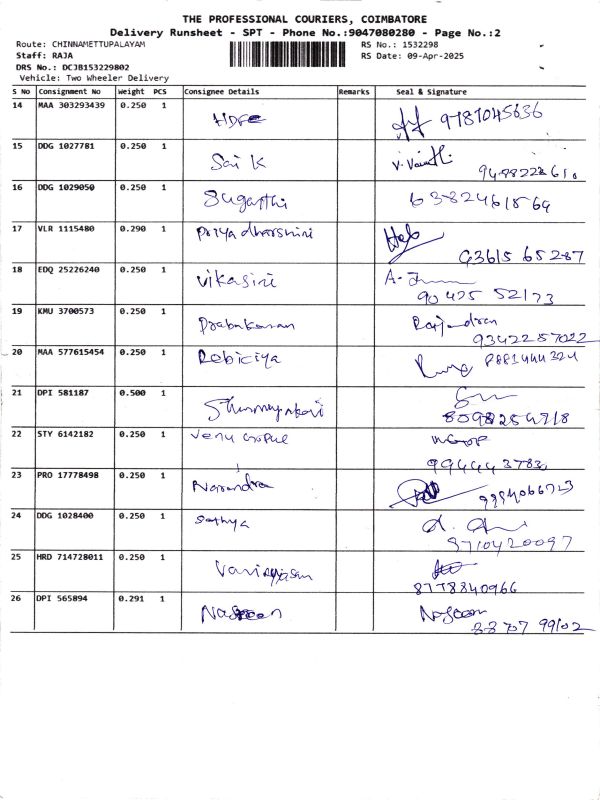 THE PROFESSIONAL COURIERS, COIMBATORE
Delivery Runsheet - SPT - Phone No.:9047080280 - Page No.:2
Route: CHINNAMETTUPALAYAM RS No.: 1532298
Staff: RAJA RS Date: 09-Apr-2025
DRS No.: DCJB153229802
Vehicle: Two Wheeler Delivery
S No Consignment No Weight PCS Consignee Details Remarks Seal & Signature
14 MAA 303293439 0.250 1 HDFC 9787045636
15 DDG 1027781 0.250 1 Sai K
9488228610
16 DDG 1029050 0.250 1 Suganthi 6382461569
17 VLR 1115480 0.290 1 Priya dharshini
63615 65287
18 EDQ 25226240 0.250 1 Vikasini
90425 52173
19 KMU 3700573 0.250 1 Prabakaran Rajendran
9342257022
20 MAA 577615454 0.250 1 Rebiciya
21 DPI 581187 0.500 1
8098254718
22 STY 6142182 0.250 1 Venu Gopal
23 PRO 17778498 0.250 1 Narendra 9994066723
24 DDG 1028400 0.250 1 Sathya
9710420097
25 HRD 714728011 0.250 1
8778840966
26 DPI 565894 0.291 1 Nasreen